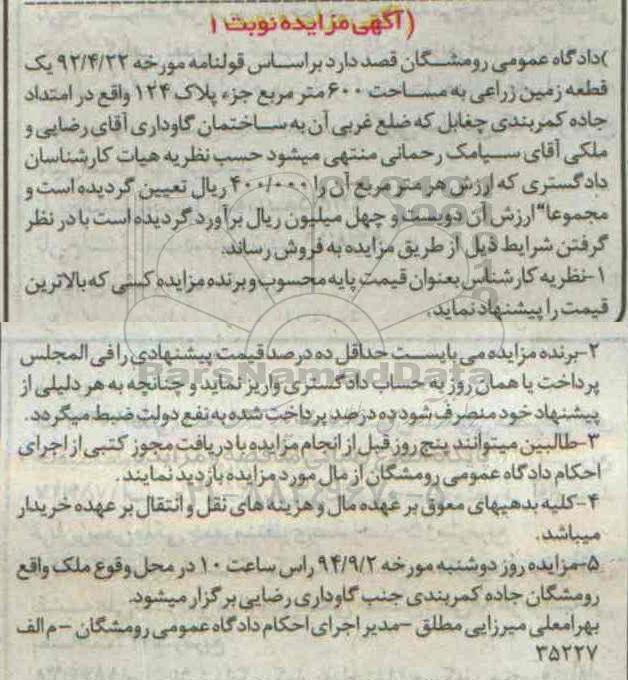 (آگهی مزایده نوبت ۱
)دادگاه عمومی رومشگان قصد دارد براساس قولنامه مورخه ۹۲/۴/۲۲ یک
قطعه زمین زراعی به مساحت ۶۰۰ متر مربع جزء پلاک ۱۲۴ واقع در امتداد
جاده کمربندی چغابل که ضلع غربی آن به ساختمان گاوداری آقای رضایی و
ملکی آقای سیامک رحمانی منتهی میشود حسب نظریه هیات کارشناسان
دادگستری که ارزش هر متر مربع آن را ۴۰۰/۰۰۰ ریال تعیین گردیده است و
مجموعا" ارزش آن دویست و چهل میلیون ریال برآورد گردیده است با در نظر
گرفتن شرایط ذیل از طریق مزایده به فروش رساند.
۱-نظریه کارشناس بعنوان قیمت پایه محسوب و برنده مزایده کسی که بالاترین
قیمت را پیشنهاد نماید.
۲-برنده مزایده می بایست حداقل ده درصد قیمت پیشنهادی را فی المجلس
پرداخت یا همان روز به حساب دادگستری واریز نماید و چنانچه به هر دلیلی از
پیشنهاد خود منصرف شود ده درصد پرداخت شده به نفع دولت ضبط میگردد.
۳-طالبین میتوانند پنج روز قبل از انجام مزایده با دریافت مجوز کتبی از اجرای
احکام دادگاه عمومی رومشگان از مال مورد مزایده بازدید نمایند.
۴-کلیه بدهیهای معوق بر عهده مال و هزینه های نقل و انتقال بر عهده خریدار
میباشد.
۵-مزایده روز دوشنبه مورخه ۹۴/۹/۲ راس ساعت ۱۰ در محل وقوع ملک واقع
رومشگان جاده کمربندی جنب گاوداری رضایی برگزار میشود.
بهرامعلی میرزایی مطلق -مدیر اجرای احکام دادگاه عمومی رومشگان -م الف
۳۵۲۲۷
ParsNamadData